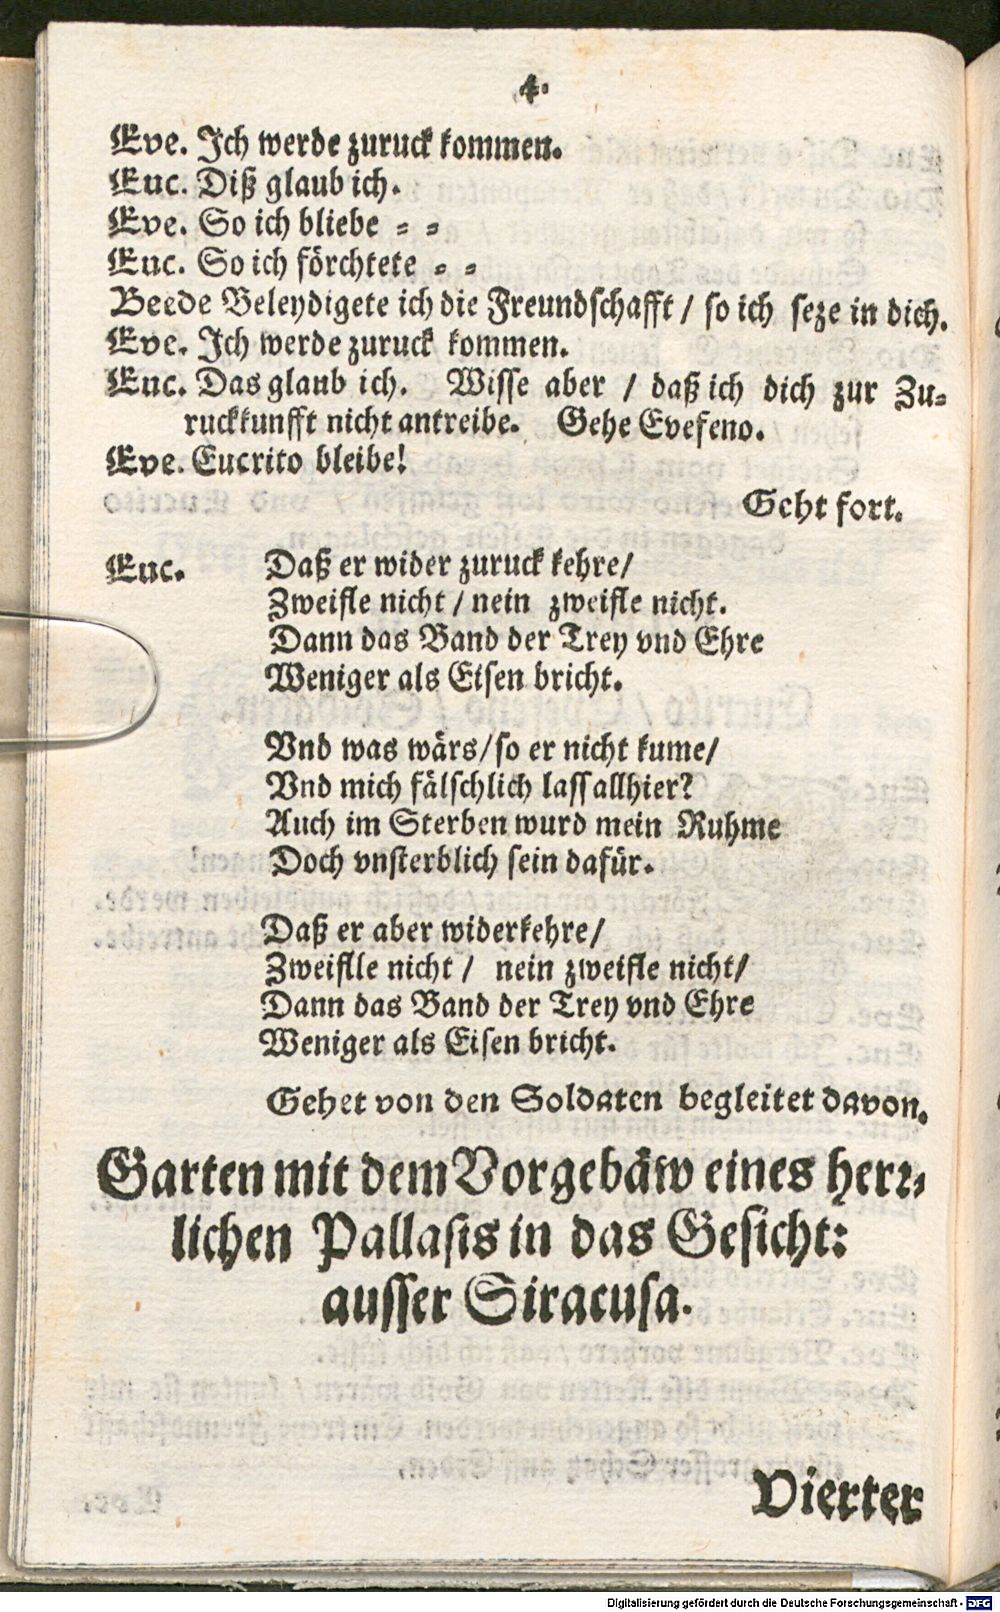 4.
Eve. Ich werde zuruck kommen.
Euc. Diß glaub ich.
Eve. So ich bliebe = =
Euc. So ich förchtete = =
Beede Beleydigete ich die Freundschafft / so ich seze in dich.
Eve. Ich werde zuruck kommen.
Euc. Das glaub ich. Wisse aber / daß ich dich zur Zu=
ruckkunfft nicht antreibe. Gehe Evefeno.
Eve. Eucrito bleibe!
Geht fort.
Euc. Daß er wider zuruck kehre/
Zweifle nicht / nein zweifle nicht.
Dann das Band der Trey vnd Ehre
Weniger als Eisen bricht.
Vnd was wärs/ so er nicht kume/
Vnd mich fälschlich lass allhier?
Auch im Sterben wurd mein Ruhme
Doch vnsterblich sein dafür.
Daß er aber widerkehre/
Zweiflle nicht / nein zweifle nicht/
Dann das Band der Trey vnd Ehre
Weniger als Eisen bricht.
Gehet von den Soldaten begleitet davon.
Garten mit dem Vorgebäw eines herr=
lichen Pallasts in das Gesicht:
ausser Siracusa.
Vierter
Digitalisierung gefördert durch die Deutsche Forschungsgemeinschaft - DFG